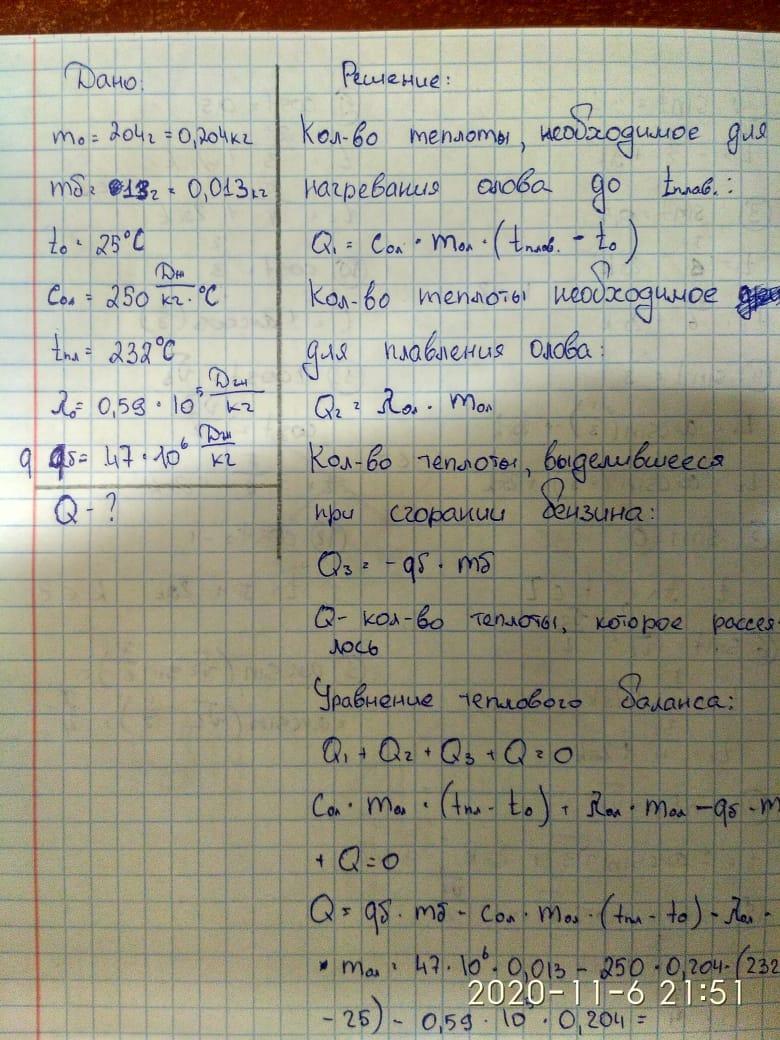 Дано:
m₀ = 204г = 0,204кг
mб = 13г = 0,013кг
t₀ = 25°C
Cол = 250 Дж/кг·°C
tпл = 232°C
λ₀ = 0,59 · 10⁵ Дж/кг
q qб = 47 · 10⁶ Дж/кг
Q - ?
Решение:
Кол-во теплоты, необходимое для
нагревания олова до tплав.:
Q₁ = Cол · mол · (tплав. - t₀)
Кол-во теплоты необходимое
для плавления олова:
Q₂ = λол · mол
Кол-во теплоты, выделившееся
при сгорании бензина:
Q₃ = - qб · mб
Q - кол-во теплоты, которое рассея-
лось
Уравнение теплового баланса:
Q₁ + Q₂ + Q₃ + Q = 0
Cол · mол · (tпл - t₀) + λол · mол - qб · m
+ Q = 0
Q = qб · mб - Cол · mол · (tпл - t₀) - λол ·
· mол = 47 · 10⁶ · 0,013 - 250 · 0,204 · (232
- 25) - 0,59 · 10⁵ · 0,204 =
2020-11-6 21:51